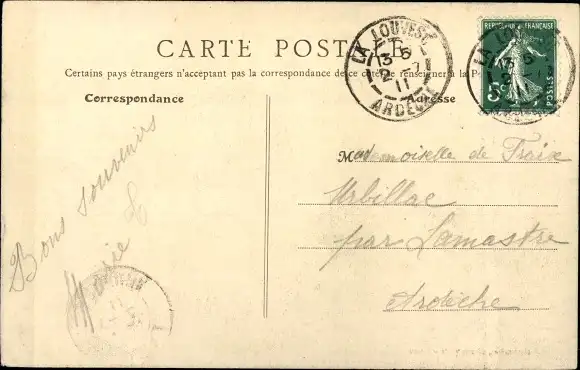 CARTE POSTALE
Certains pays étrangers n'acceptant pas la correspondance de ce côté, se renseigner à la
Correspondance
Adresse
LA LOUVESC
13 5
11
ARDÈCHE
RÉPUBLIQUE FRANÇAISE
5c
POSTES
LA
Bons souvenirs
Marie
Mademoiselle de
Urbillac
par Lamastre
Ardèche